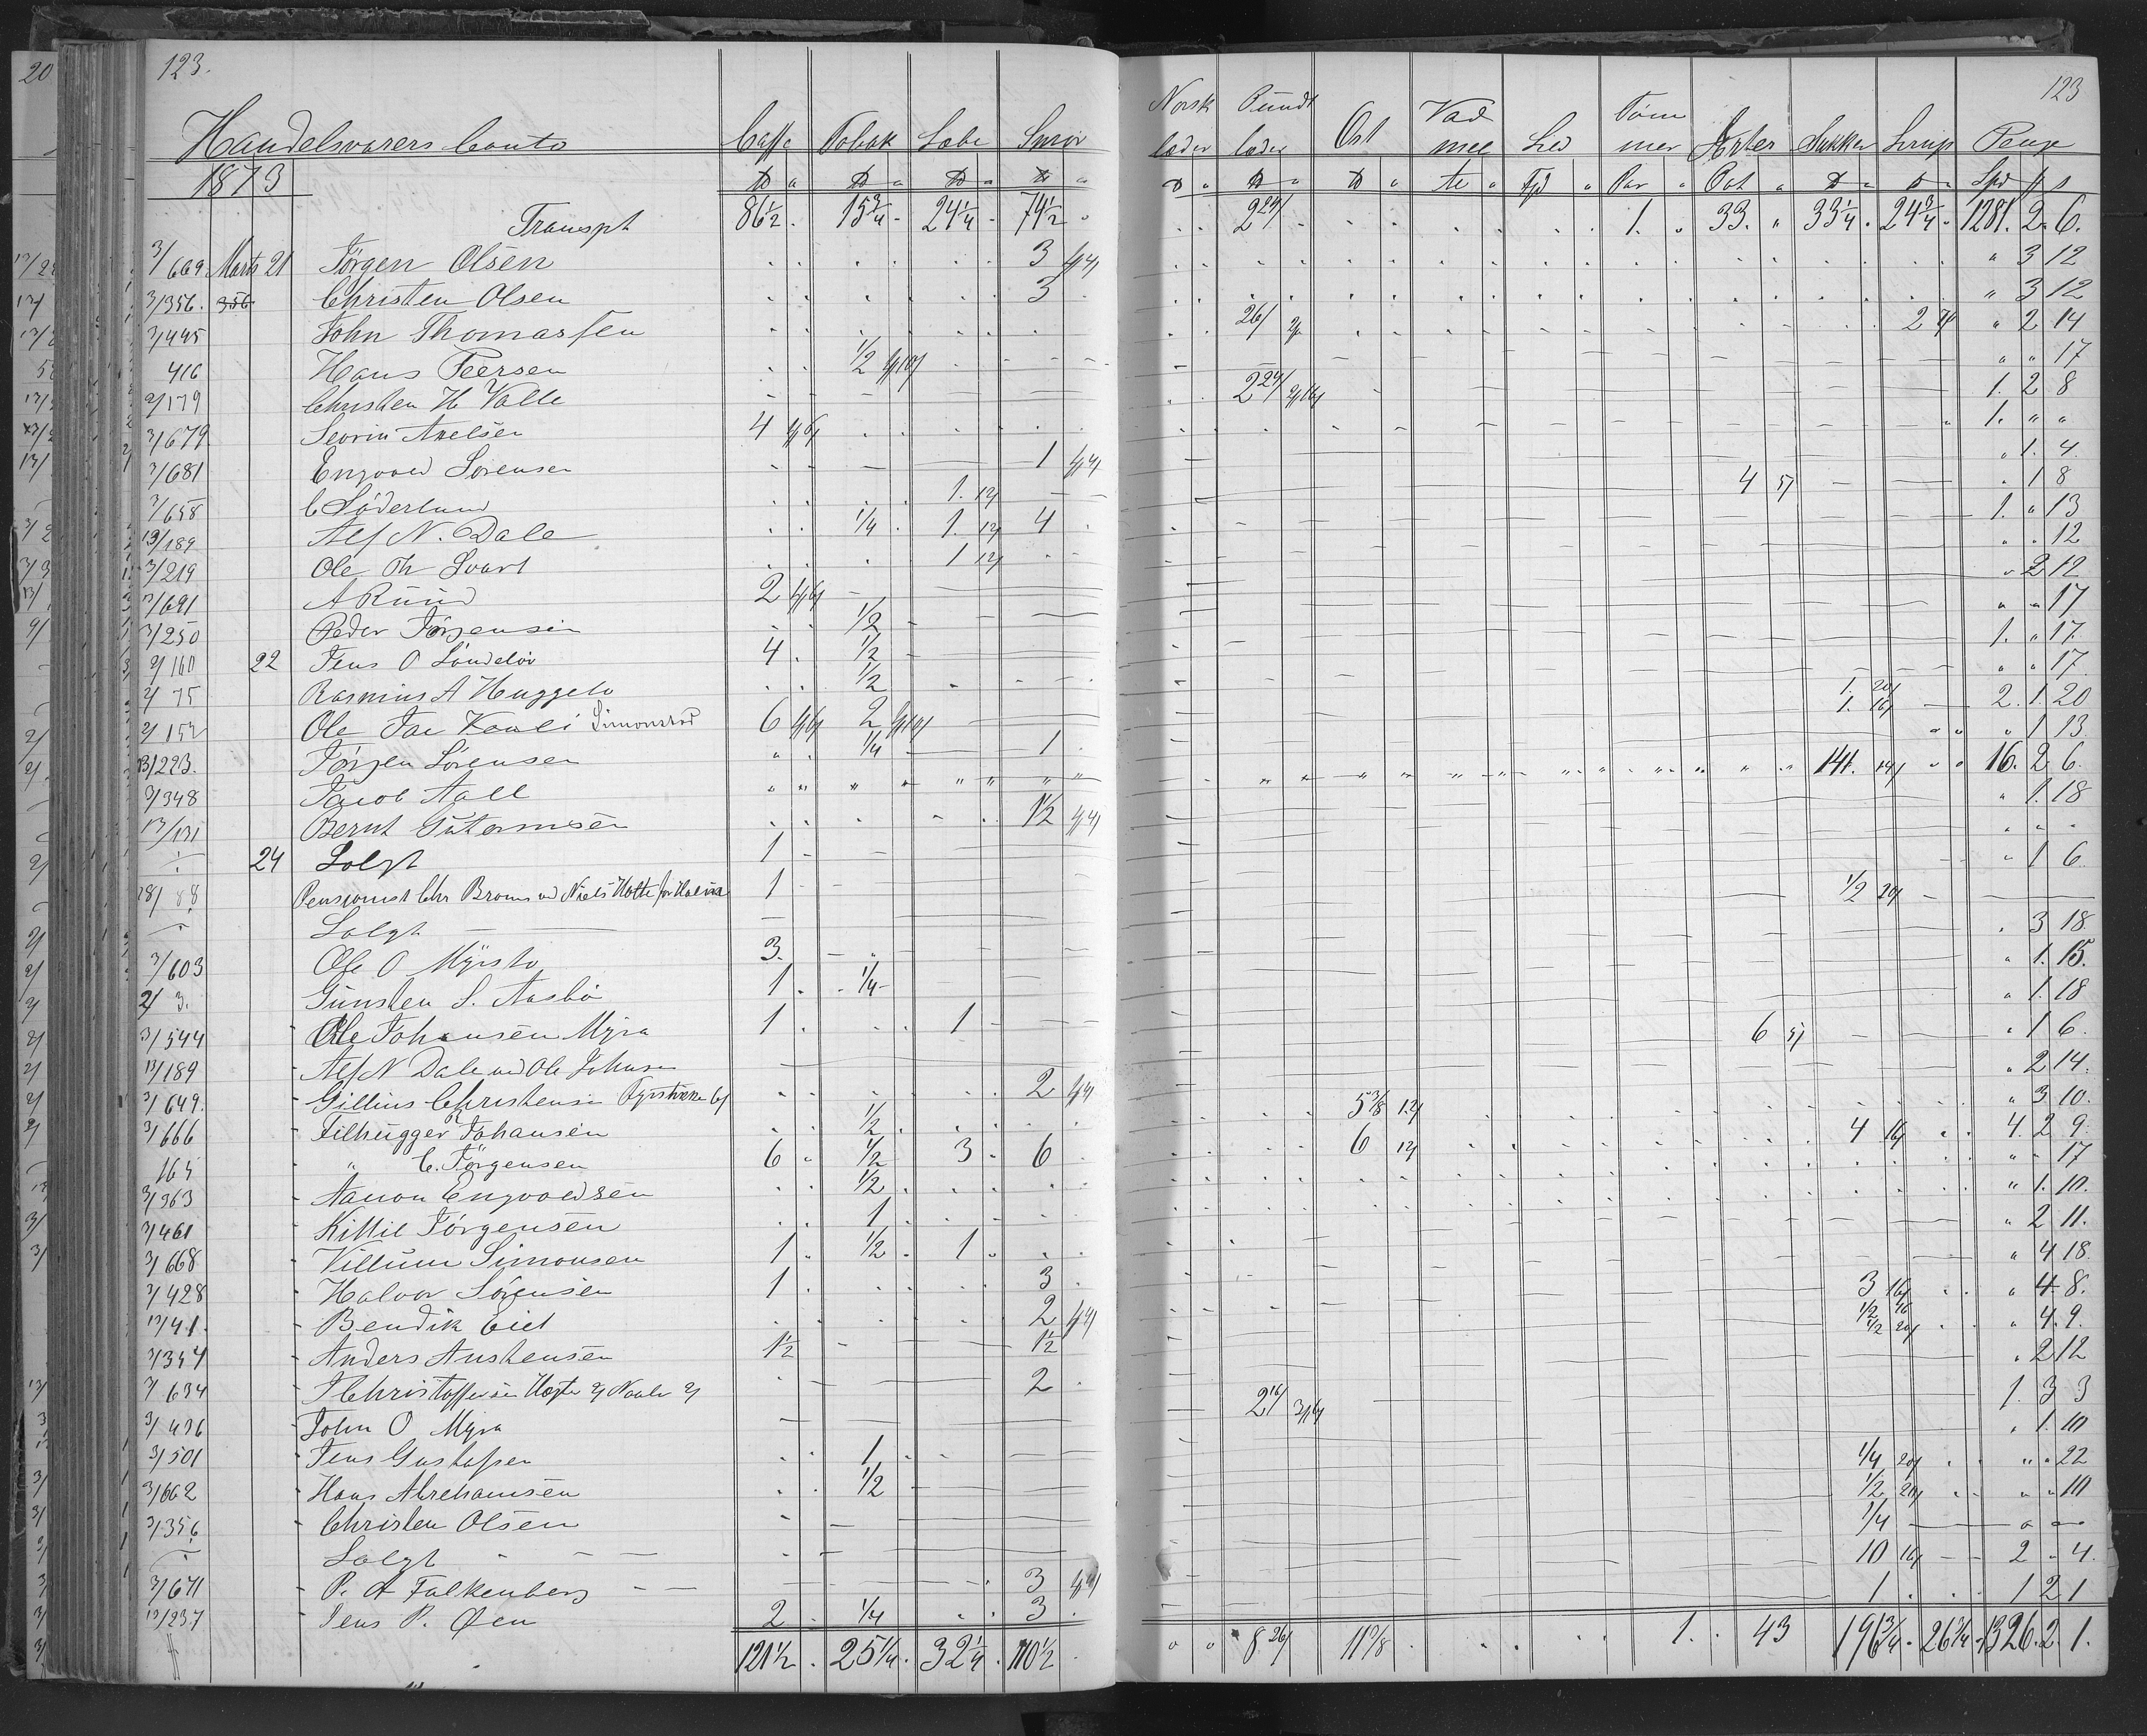 123. 123
Handelsvarers Conto Caffe Tobak Sæbe Smør Norsk læder Pundt læder Ost Vadmel Sild Tømmer Ærter Sukker Sirup Penge
1873 Par Pot Spd
Transpt 86 1/2 . 15 3/4 - 24 1/4 . 74 1/2 . 2 24/ 1. 33. " 33 1/4 . 24 3/4 . 1281. 2. 6.
3/669. Marts 21 Jørgen Olsen 3 " 3 12
3/356. 356 Christen Olsen 3 " 3 12
3/445 John Thomassen 26/ 2 " 2 14
416 Hans Peersen 1/2 " " 17
2/179 Christen H Valle 2 24/ 1. 2 8
3/679 Severin Axelsen 4 1. " "
3/681 Engvold Sørensen 1 " 1. 4.
3/658 C Söderlund 1. 12/ 4 5/ . 1 8
13/189 Alf N. Dale 1/4 . 1. 12/ 4 . 1. " 13
3/219 Ole Th Svart 1 12/ " . 12
3/691 A Ruud 2 " 2 12
3/250 Peder Jørgensen 1/2 " " 17
2/160 22 Jens O Løndeløv 4 . 1/2 1. " 17.
2/75 Rasmus A Heggelv 1/2 " " 17.
2/152 Ole Jac Simonstad 6 2 1. 20/ 1. 16/ 2. 1. 20
13/223. Jørgen Sørensen 1/4 1 . " 1 13
3/348 Jacob Aall 141. 14/ 16. 2 6.
13/131 Bernt Gutormsen 1 1/2 " 1. 18
24 Solgt 1 " " "
28/88 Pensionist Chr Broms ved Niels Hotte for Halvor 1 " 1 6
Solgt 1/2 20/
3/603 Ole O Myrstø 3. . 3 18
2/3. Gunsten S. Aasbø 1 . 1/4 " 1. 15.
3/544 Ole Johansen Myra 1 . 1 " 1. 18
13/189 Alf N Dale ved Ole Johnsen 6 5/ . 1 6.
3/649. Gillius Christensen 2 " 2 14.
3/666 Filhugger Johansen 1/2 5 3/8 12/ " 3 10.
165 " C. Jørgensen 6 " 1/2 3 . 6 . 6 12/ 4 16/ 4. 2 9.
3/363 Aanon Engvoldsen 1/2 " " 17
3/461 Kittil Jørgensen 1 " 1. 10.
3/668 Villum Simonsen 1 . 1/2 . 1 " 2 11.
3/428 Halvor Sørensen 1 . 3 . " 4 18.
13/41. Bendik Eiet 2 3 16/ " 4 8.
3/354 Anders Austensen 1 1/2 1 1/2 1/2 16 1/2 20/ " 4. 9.
3/634 J Christoffersen 2 . . 2 12
3/436 John O Myra 2 16/ 1. 3 3
3/501 Jens Gustafsen 1 . 1. 10
3/662 Hans Abrahamsen 1/2 1/4 20/ " . 22
3/356 Christen Olsen 1/2 20/ " . 10
Solgt 1/4
3/671 P. A Falkenberg 3 10 16/ 2 " 4.
13/237 Jens P. Øen 2 . 1/4 3 . 1 . 1 2 1
121 1/2 . 25 1/4 . 32 1/4 . 110 1/2 8 26/ 11 3/8 1. 43 196 3/4 . 26 3/4 . 1326. 2. 1.